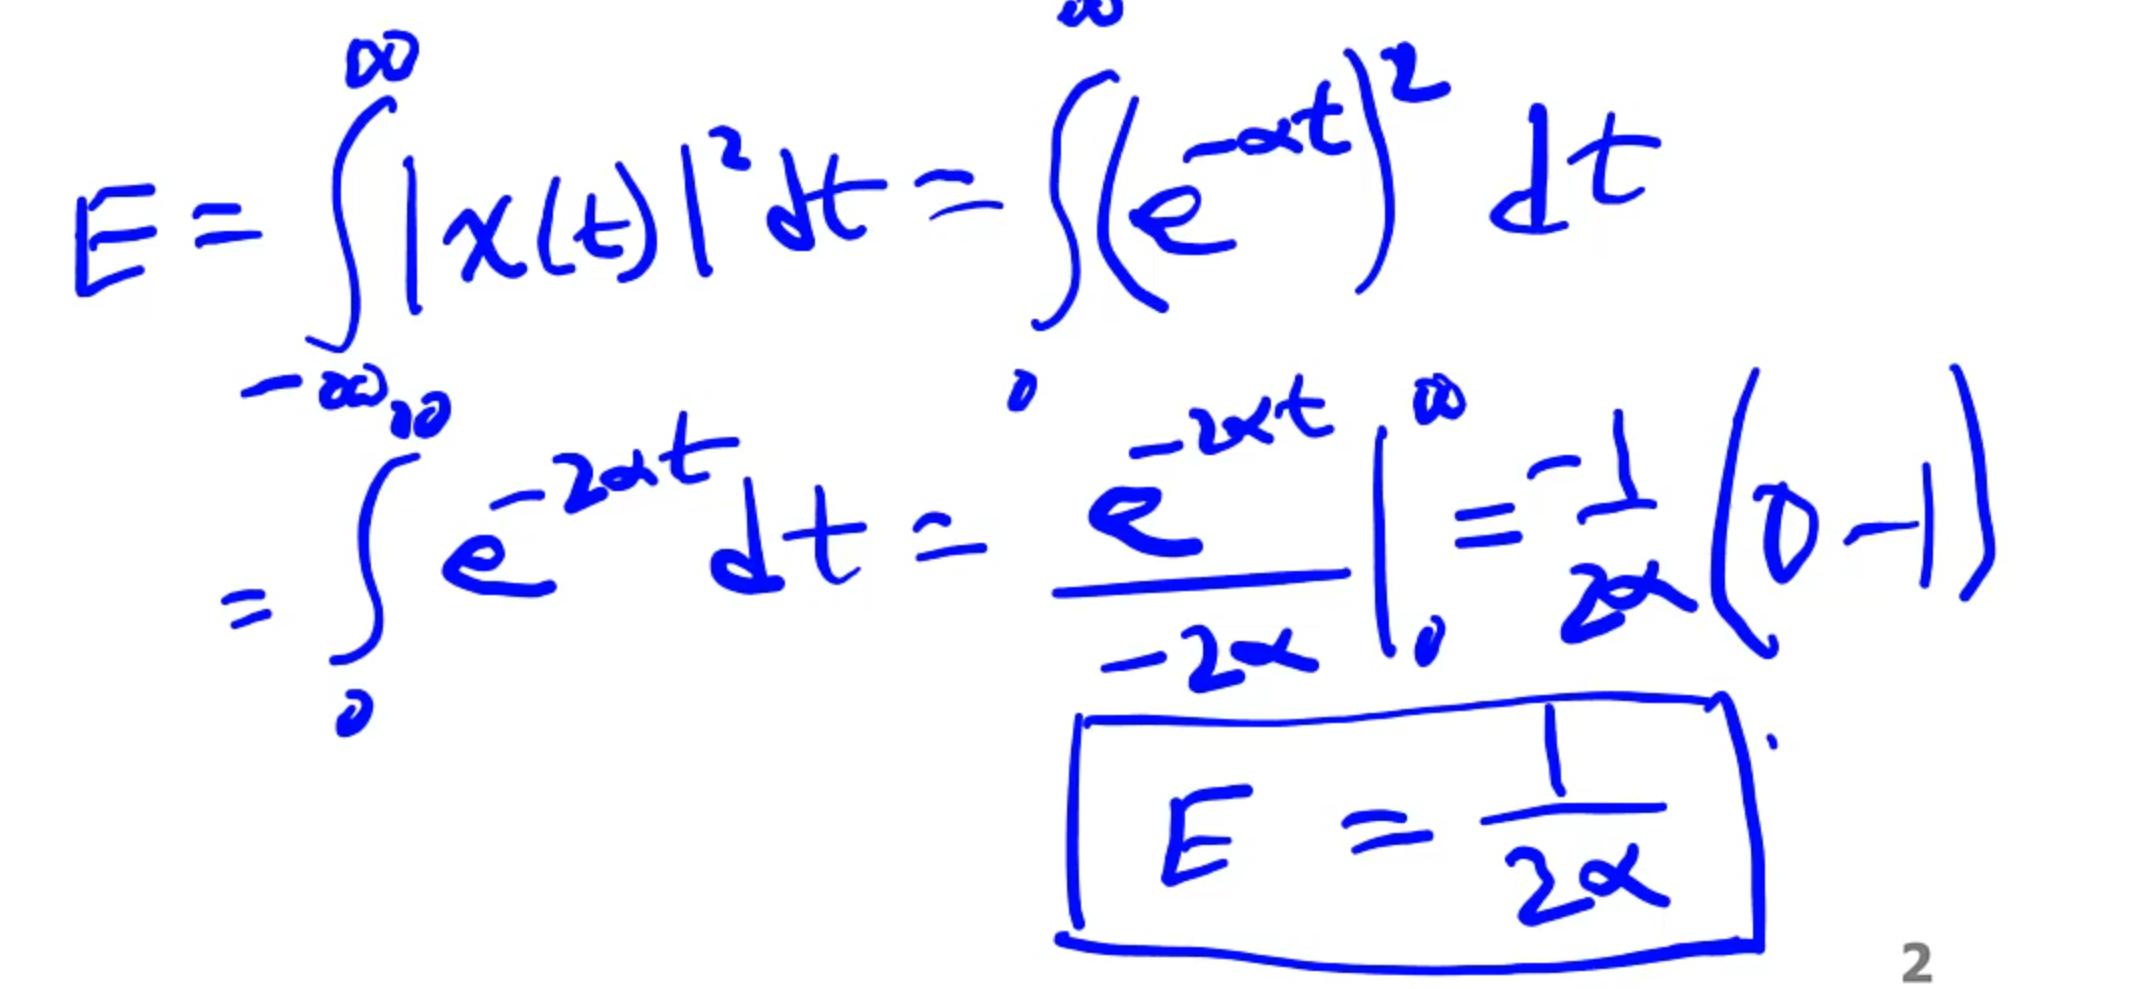 E = ∫_{-∞}^{∞} |x(t)|² dt = ∫_{0}^{∞} (e^{-αt})² dt
= ∫_{0}^{∞} e^{-2αt} dt = e^{-2αt} / -2α |_{0}^{∞} = -1/2α (0 - 1)
E = 1/2α
2